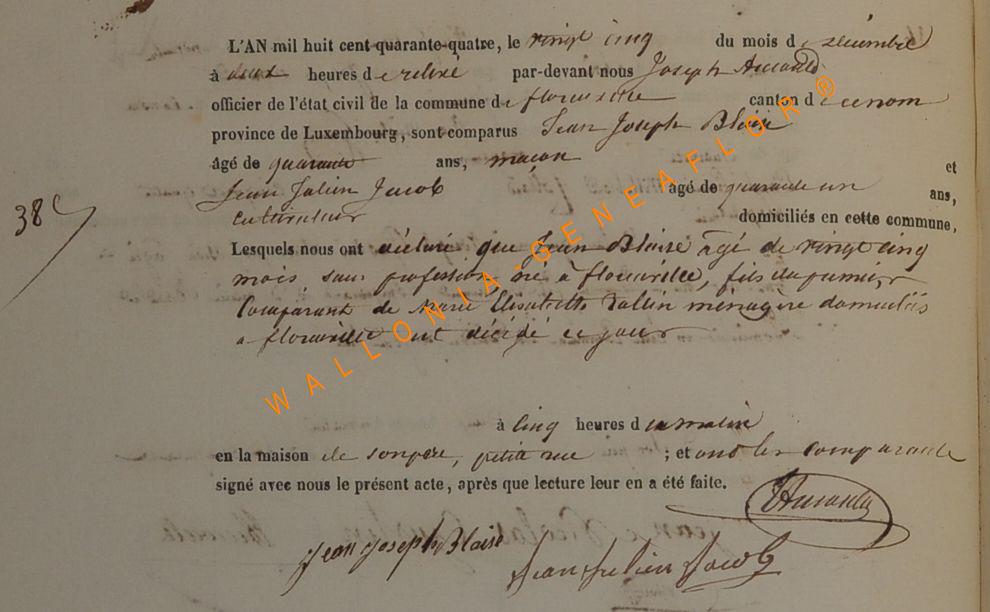 L'AN mil huit cent quarante-quatre, le vingt cinq du mois de décembre
à deux heures de relevé par-devant nous Joseph
officier de l'état civil de la commune de florenville canton d
province de Luxembourg, sont comparus Jean Joseph Blaise
âgé de quarante ans, maçon et
Jean Julien Jacob âgé de quarante un ans,
cultivateur domiciliés en cette commune,
38
Lesquels nous ont déclaré que Jean Blaise âgé de vingt cinq
mois sans profession né à florenville, fils du premier
Comparant de Marie Elisabeth ménagère domiciliés
a florenville est décédé ce jour
à cinq heures du matin
en la maison de son père, petite rue ; et ont les comparants
signé avec nous le présent acte, après que lecture leur en a été faite.
Jean Joseph Blaise
Jean Julien Jacob
WALLONIA-GENEAFLOR®